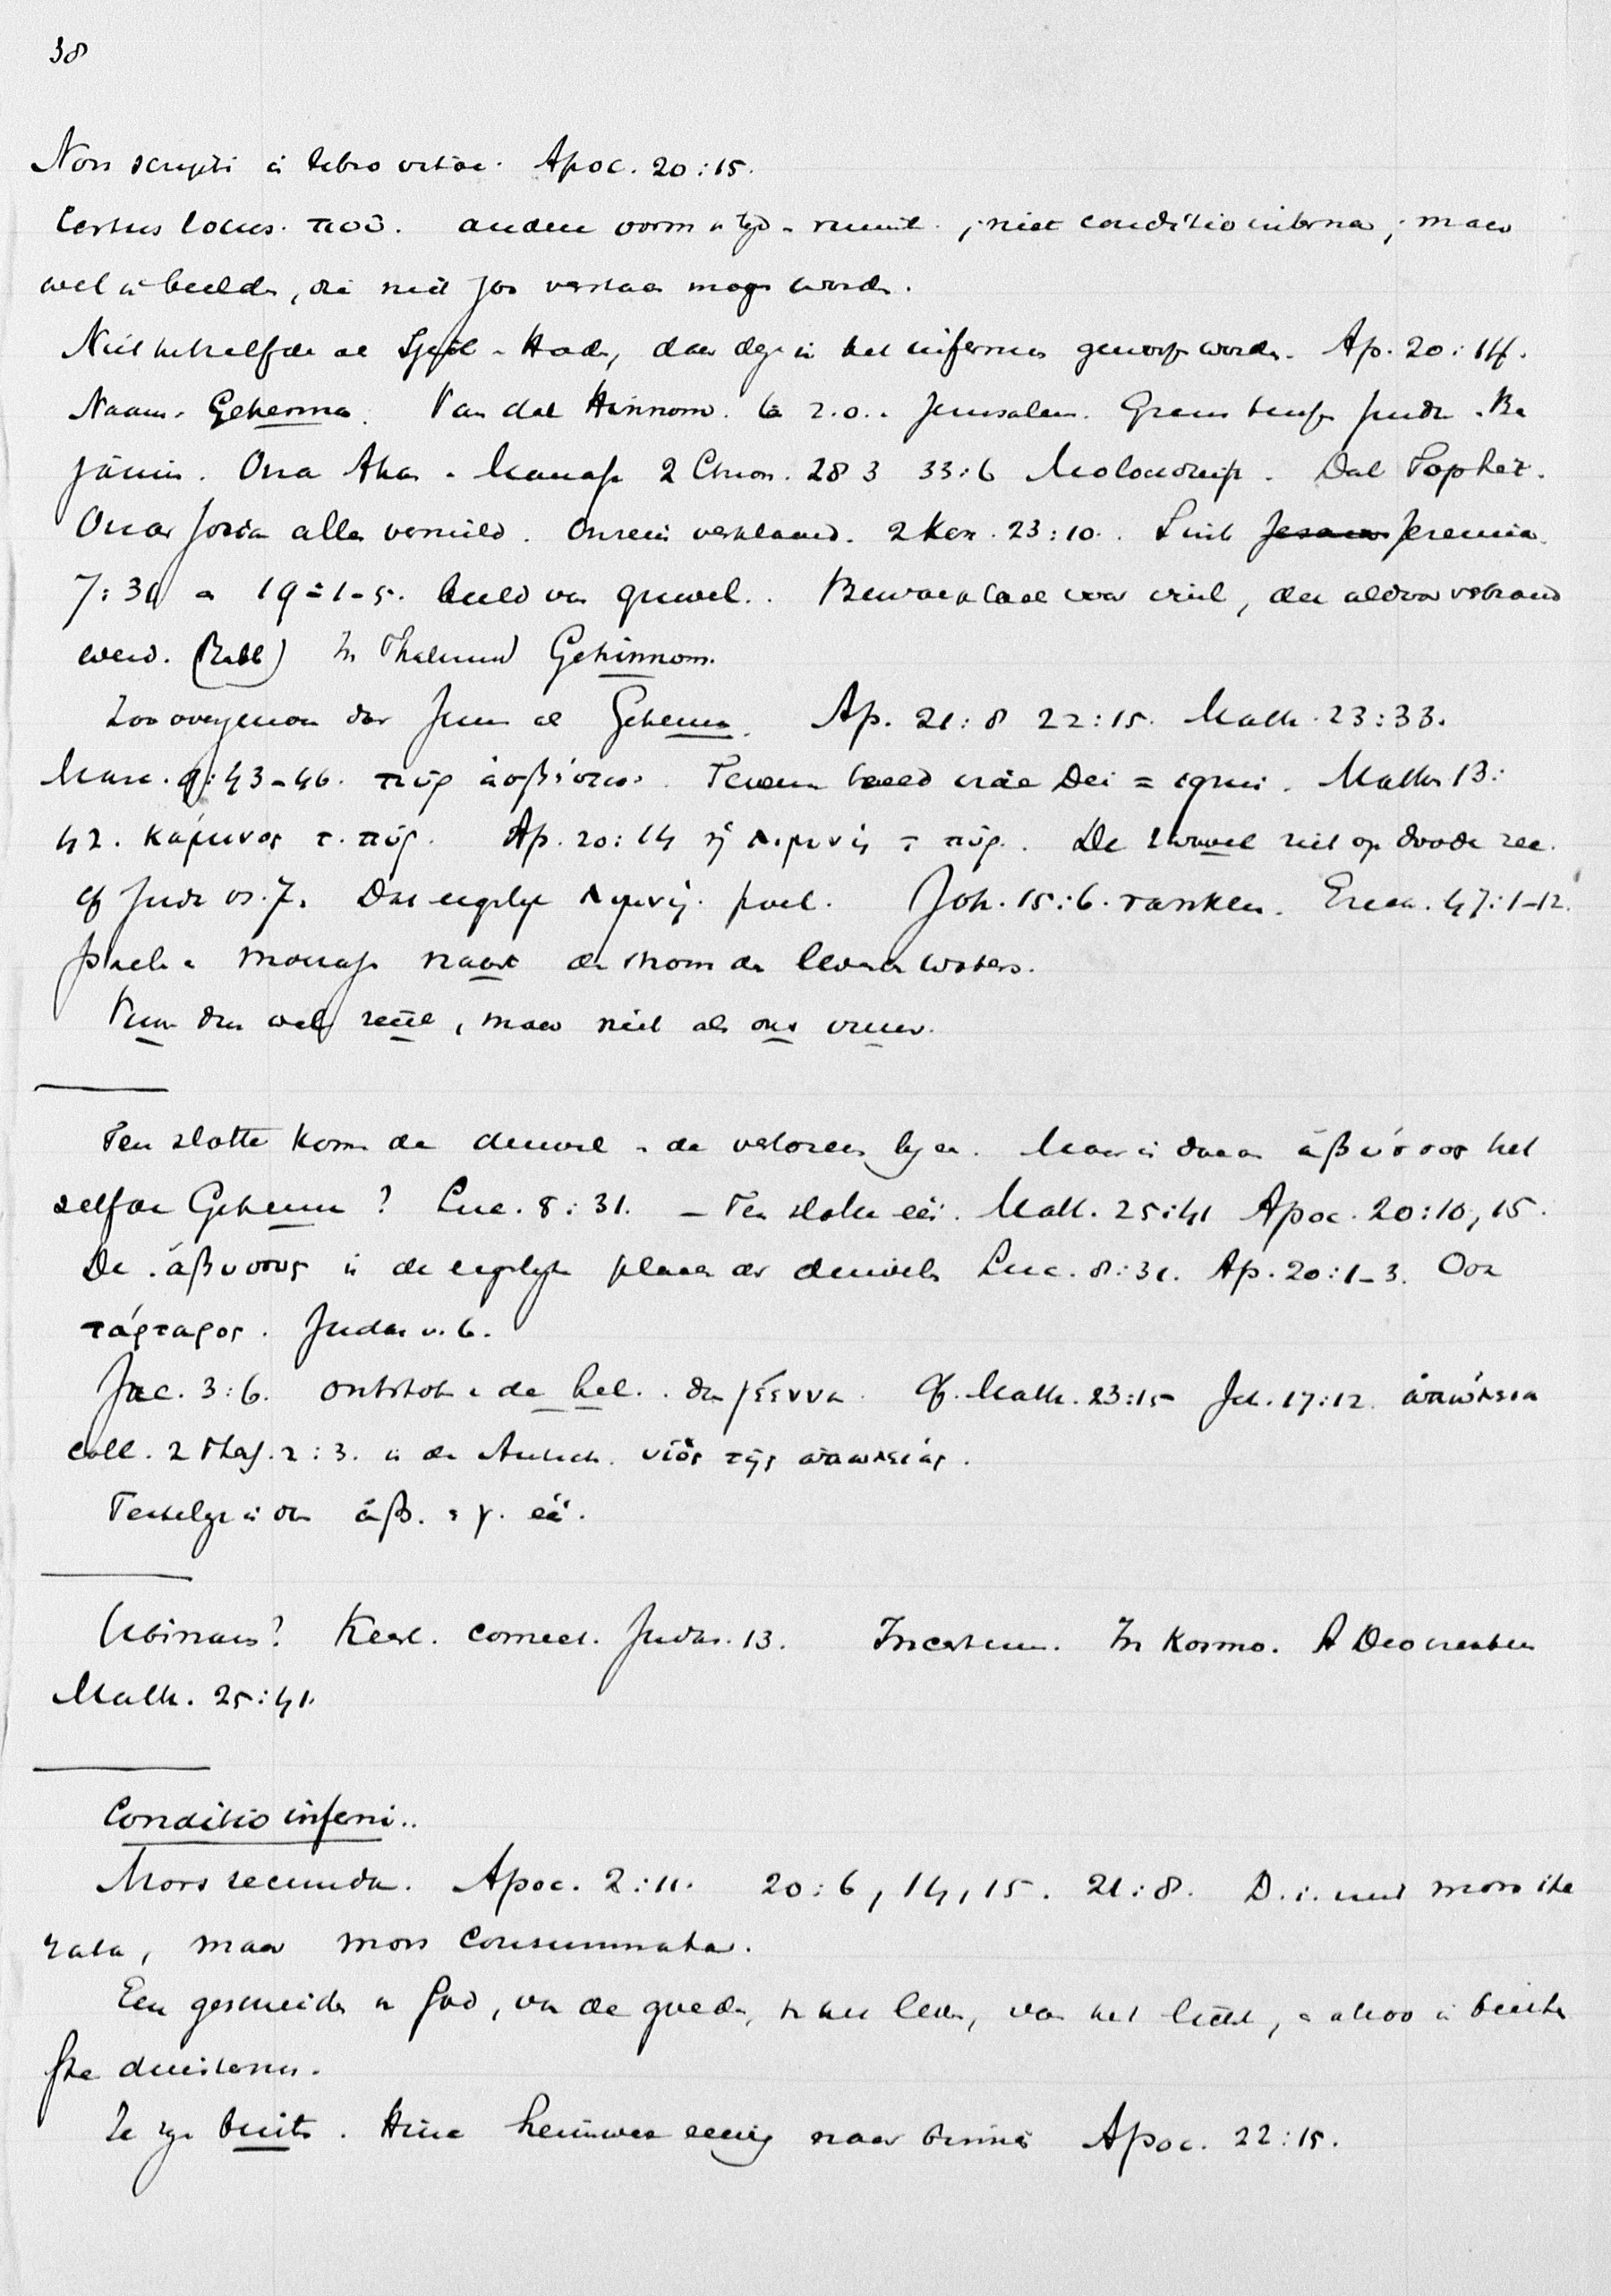 38
Non scripti in libro vitae. Apoc. 20:15.
Certus locus. ποῦ. andere vorm v tijd en ruimte. ; niet conditio interna ; maar
wel in beelden, die niet zoo verstaan mogen worden.
Niet hetzelfde als Sjeool en Hades, daar deze in het infernus geworpen worden. Ap. 20:14.
Naam. Gehenna. Van dal Hinnom. ten z.o. v. Jerusalem. Grens tussen Juda en Ben
jamin. Onder Achas en Manasse 2 Chron. 28 3 33:6 Molochdienst. Dal Tophet.
Onder Josia alles vernield. Onrein verklaard. 2 Kon. 23:10. Sinds Jesaia Jeremia
7:31 en 19:1-5. beeld van gruwel. Bewaarplaats voor vuil, dat aldaar verbrand
werd. (Rabb) In Thalmud Gehinnom.
Zoo overgenomen door Jezus als Gehenna. Ap. 21:8 22:15. Matth. 23:33.
Marc. 9:43-46. πῦρ ἄσβεστον. Tevens beeld irae Dei = ignis. Matth 13:
42. κάμινος τ. πῦρ. Ap. 20:14 ἡ λιμνὴ τ πῦρ. De zwavel ziet op doode zee.
cf Juda vs. 7. Dus eigenlijk λιμνή. poel. Joh. 15:6. ranken. Ezech. 47:1-12.
poelen en moerassen naast de stroom der levende waters.
Vuur dus wel reëel, maar niet als ons vuur.
Ten slotte komen de duivel en de verlorenen bijeen. Maar is daarom ἄβυσσος het
zelfde Gehenna? Luc. 8:31. – Ten slotte één. Matt. 25:41 Apoc. 20:10, 15.
De ἄβυσσος is de eigenlijke plaats der duivelen Luc. 8:31. Ap. 20:1-3. Ook
τάρταρος. Judas v. 6.
Jac. 3:6. ontstoken v de hel. de γέεννα. Cf. Matth. 23:15 Joh. 17:12 ἀπώλεια
coll. 2 Thess. 2:3. is de Antich. υἱὸς τῆς ἀπωλείας.
Feitelijk is dus ἄβ. en γ. één.
Ubinam? Keerl. comeet. Judas. 13. Incertum. In Kosmo. A Deo creatum
Matth. 25:41.
Conditio inferni..
Mors secunda. Apoc. 2:11. 20:6, 14, 15. 21:8. D.i. niet mors ite
rata, maar mors consummata.
Een gescheiden v God, van de goeden, v het leven, van het licht, en alzoo in buiten
ste duisternis.
Ze zijn buiten. Hunc heimwee eeuwig naar binnen Apoc. 22:15.